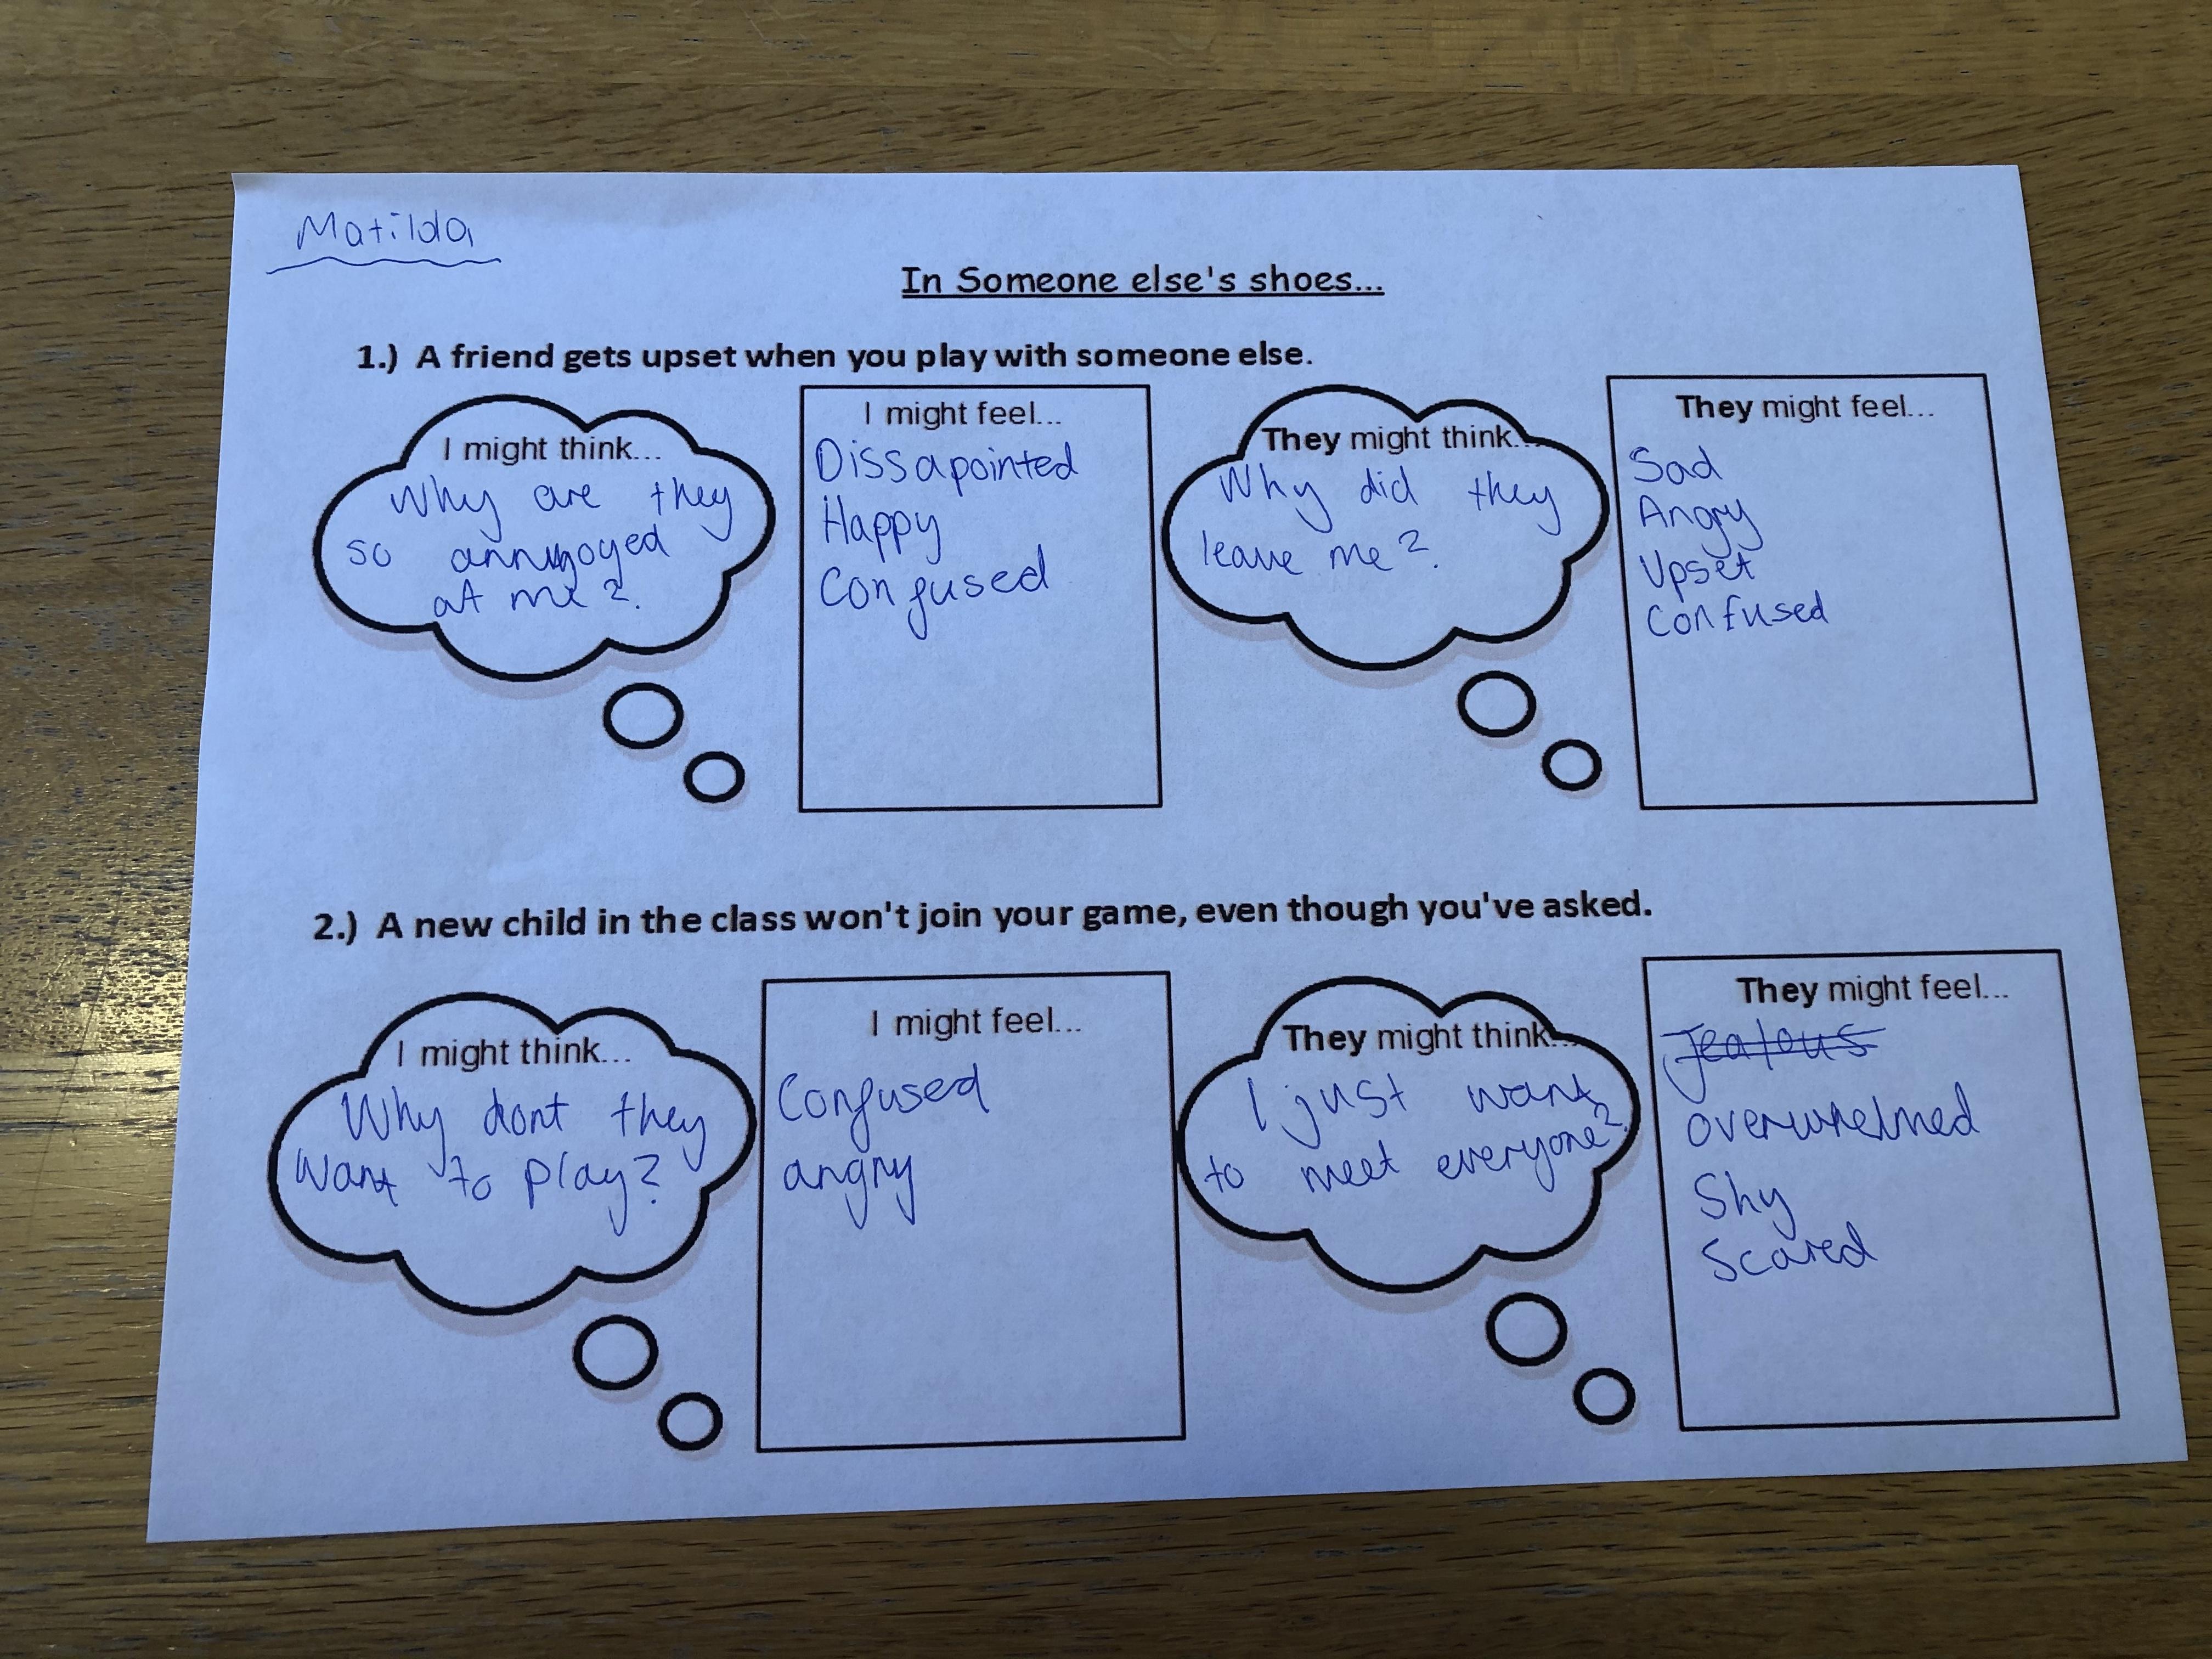 Matilda
In Someone else's shoes...
1.) A friend gets upset when you play with someone else.
I might think...
Why are they
so annyoyed
at me?
I might feel...
Dissapointed
Happy
Confused
They might think...
Why did they
leave me?
They might feel...
Sad
Angry
Upset
Confused
2.) A new child in the class won't join your game, even though you've asked.
I might think...
Why dont they
want to play?
I might feel...
Confused
angry
They might think...
I just want
to meet everyone?
They might feel...
Jealous
overwhelmed
Shy
Scared